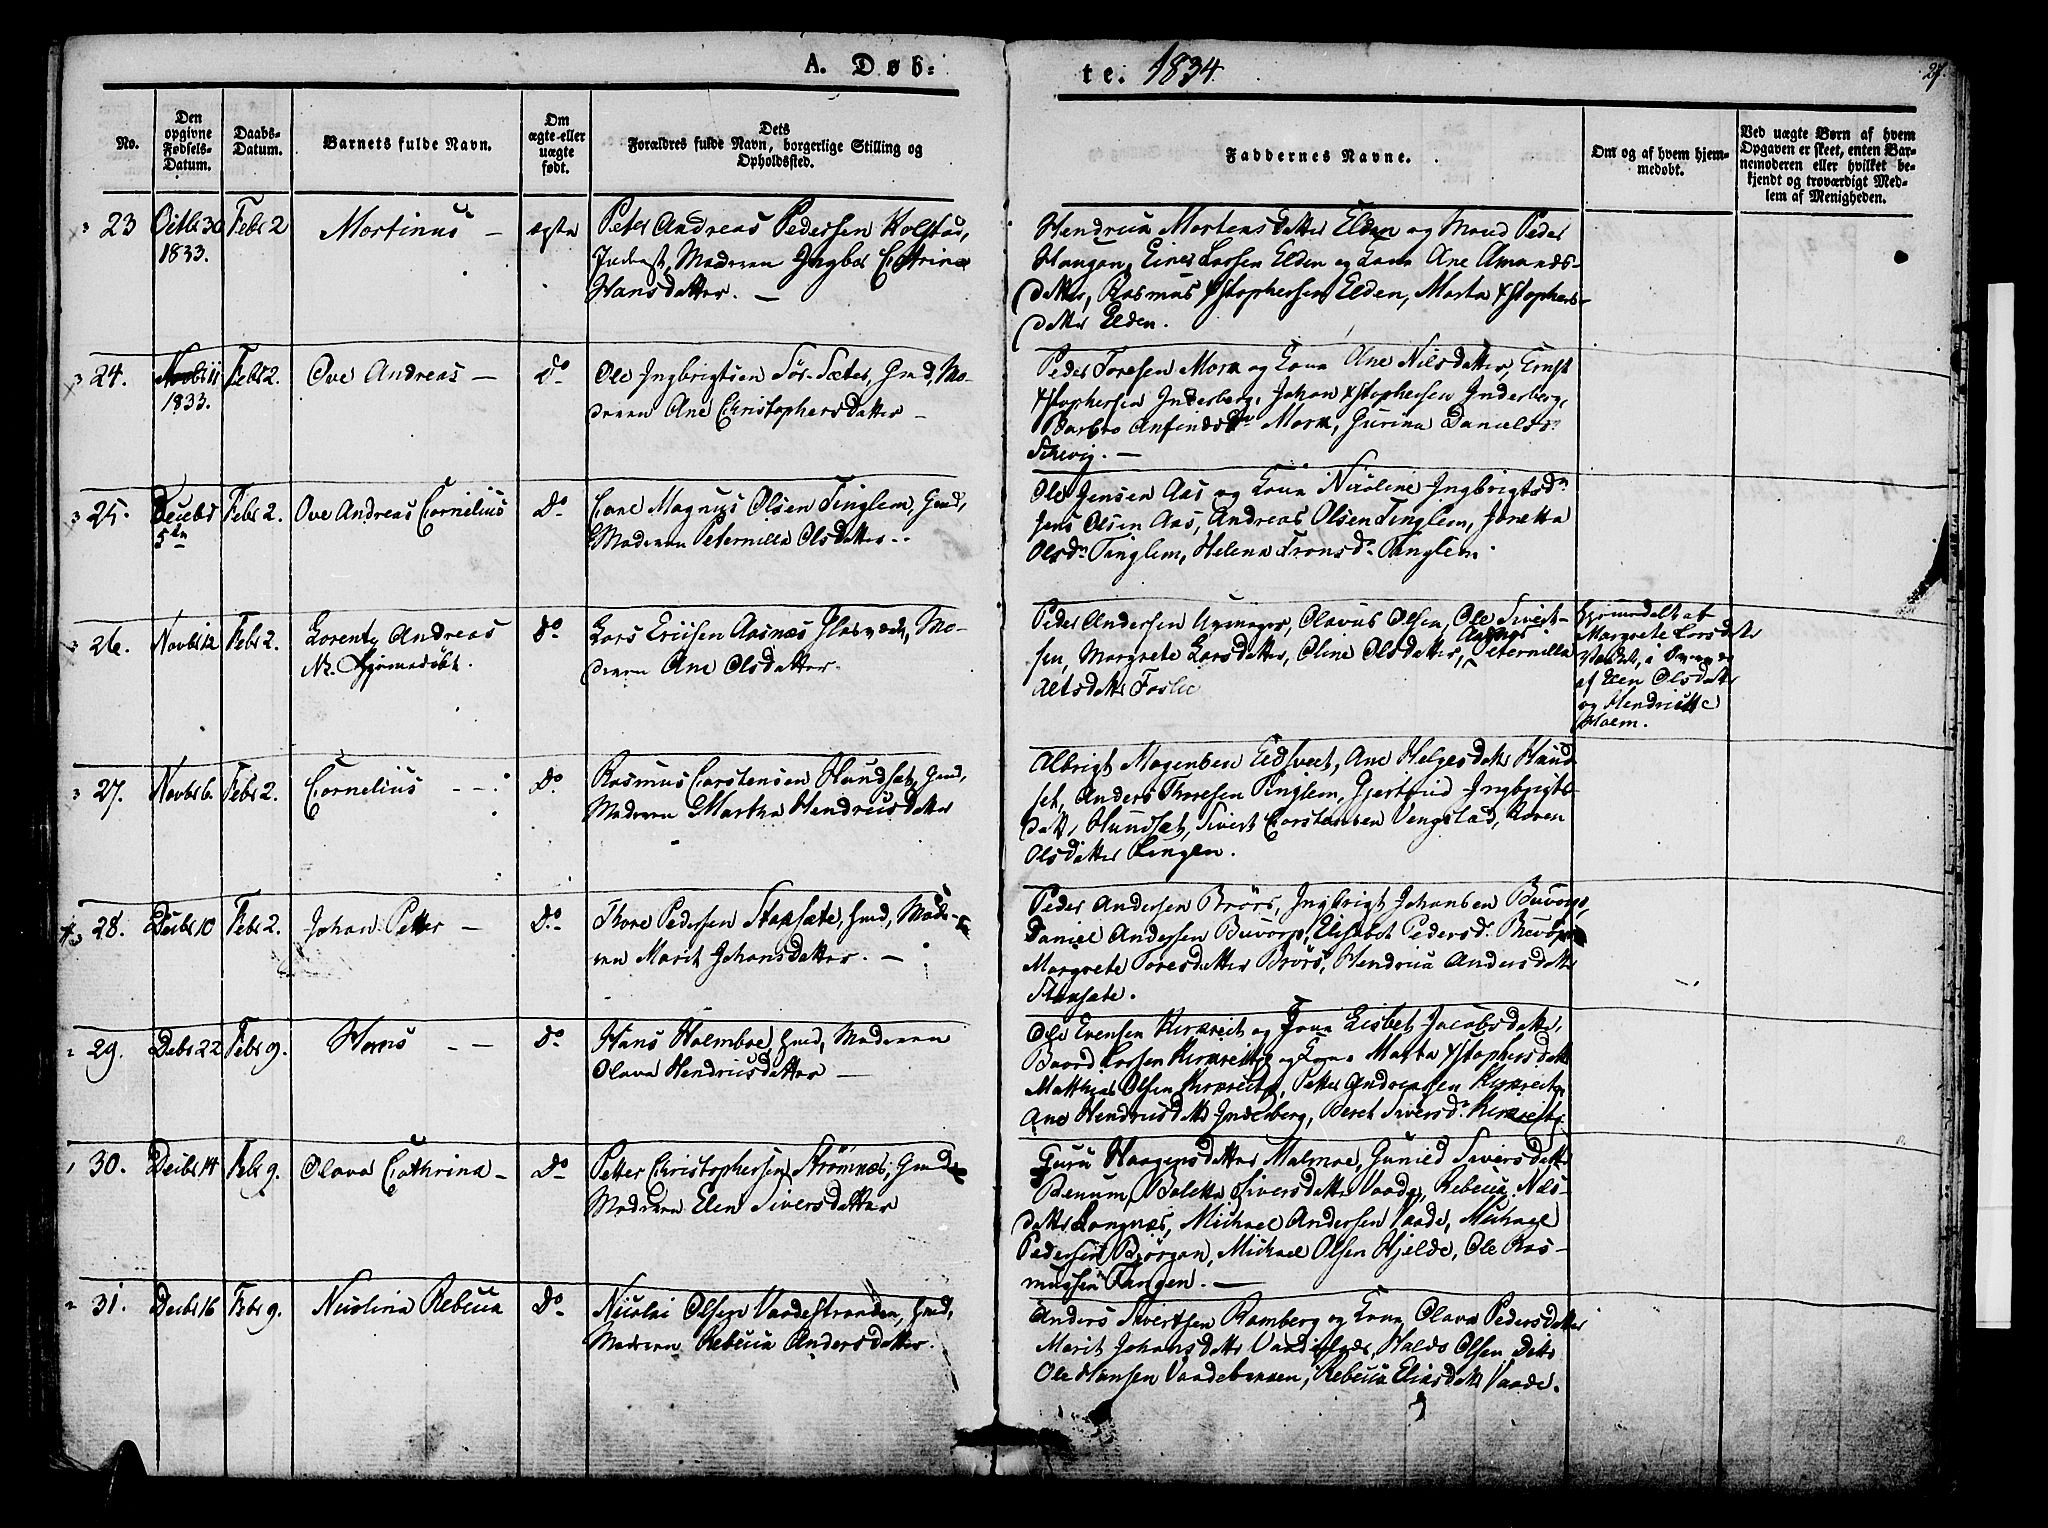 A. Døb-
te. 1834
27.
No.
Den opgivne Fødsels-Datum.
Daabs-Datum.
Barnets fulde Navn.
Om ægte eller uægte født.
Dets
Forældres fulde Navn, borgerlige Stilling og
Opholdssted.
Faddernes Navne.
Om og af hvem hjem-
medøbt.
Ved uægte Børn af hvem
Opgaven er skeet, enten Bar-
nemoderen eller hvilket be-
kjendt og troværdigt Med-
lem af Menigheden.
23 Octbr 30 1833. Febr 2 Martinus - ægte
Peter Andreas Pedersen Holstad,
Inderst, Moderen Ingbor Catrina
Hansdatter. -
Hendrica Mortensdatter Elden og Mand Peder
Haugan, Einer Larsen Elden og Kona Ane Amunds-
datter, Rasmus Xstophersen Elden, Marta Xstophers-
datter Elden.
24. Novbr 11 1833. Febr 2. Ove Andreas - Do
Ole Ingbrigtsen Sör-Sæter, Gmd, Mo-
deren Ane Christophersdatter -
Peder Toresen Mork og Kona Ane Nilsdatter, Ernst
Xstophersen Inderberg, Johan Xstophersen Inderberg,
Barbro Anfindsdr Mork, Gurina Danielsdr
25. Decebr 5te Febr 2. Ove Andreas Cornelius Do
Lars Magnus Olsen Tinglem, Gmd,
Moderen Peternilla Olsdatter -
Ole Jensen Aas og Kona Nicoline Ingbrigtsdr
Jens Olsen Aas, Andreas Olsen Tinglem, Jonetta
Olsdr Tinglem, Helena Tronsdr Tinglem.
26. Novbr 12 Febr 2. Lorentz Andreas
Nb. Hjemmedöbt. Do
Lars Ericsen Aasnæs, Mo-
deren Ane Olsdatter.
Peder Andersen, Olavus Olsen, Ole Sivert-
sen, Margrete Larsdatter, Oline Olsdatter, Aasnæs Peternilla
datter Foslie
Hjemmedøbt af
Margrete Larsdatter
af Elen Olsdatter
og Hendricke
Holem.
27. Novbr 6. Febr 2. Cornelius - Do
Rasmus Carstensen Hundset, Gmd,
Moderen Martha Hendricsdatter
Albrigt Mogensen Eidsvet, Ane Helgesdatter Hund-
set, Anders Thoresen Tinglem, Gjertrud Ingbrigts-
datter Hundset, Sivert Carstensen Vengstad, Karen
Olsdatter Lengen.
28. Decbr 10 Febr 2. Johan Petter - Do
Thore Pedersen Storsæte, Gmd, Mode-
ren Marit Johansdatter. -
Peder Andersen Brörs, Ingbrigt Johansen Buvorp,
Daniel Andersen Buvorp, Elisabet Pedersdr Buvorp
Margrete Toresdatter Brörs, Hendrica Andersdatter
Storsæte.
29. Debr 22 Febr 9. Hans - - Do
Hans Holmboe, Gmd, Moderen
Olava Hendricsdatter -
Ole Evensen Kirkreit og Kona Lisbet Jacobsdatter,
Baard Larsen Kirkreit og Kona Marta Xstophersdatter
Matthias Olsen Kirkreit, Petter Andreassen Kirkreit,
Ane Hendricsdatter Inderberg, Beret Siversdr Kirkreit.
30. Decbr 14 Febr 9. Olava Cathrina - Do
Petter Christophersen Strömnæs, Gmd,
Moderen Elen Siversdatter
Guru Haagensdatter Malmoe, Gunild Siversdatter
Benum, Boletta Siversdatter Vaade, Rebecca Nils-
datter Langnæs, Michael Andersen Vaade, Michael
Pedersen Björgan, Michael Olsen Hjelde, Ole Ras-
mussen Tangen. -
31. Decbr 16 Febr 9. Nicolina Rebecca Do
Nicolai Olsen Vaadestranden, Gmd,
Moderen Rebecca Andersdatter.
Anders Sivertsen Ramberg og Kona Olava Pedersdatter
Marit Johansdatter, Halds Olsen Ditto
Ole Hansen, Rebecca Eliasdatter Vaade.